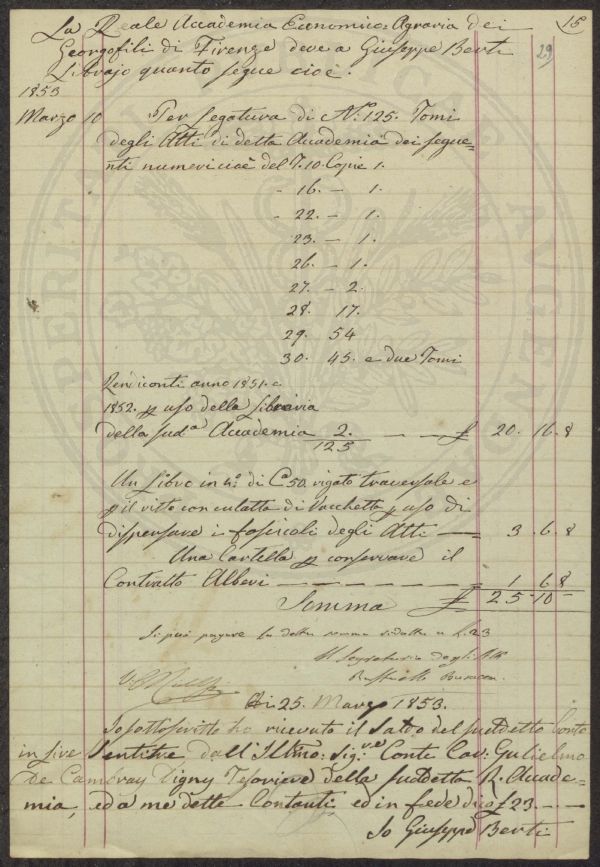 La Reale Accademia Economico=Agraria dei
15
Georgofili di Firenze deve a Giuseppe Berti
29
Librajo quanto segue cioè.
1853
Marzo 10 Per legatura di N.º 125. Tomi
degli Atti di detta Accademia dei segue=
nti numeri cioè del T. 10. Copie 1.
- 16. - 1.
- 22. - 1.
23. - 1.
26. - 1.
27. - 2.
28. 17.
29. 54
30. 45. e due Tomi
Rendiconti anno 1851. e
1852. p uso della libraria
della sud.a Accademia 2. — — £ 20. 16. 8
125
Un Libro in 4.º di C.a 50. rigato traversale e
p il ritto con cutatta di Vacchetta p uso di
dispensare i fascicoli degli Atti — 3. 6. 8
Una Cartella p conservare il
Contratto Alberi — — — — — = 1 6 8
Somma £ 25 - 10 -
Si può pagare la detta somma ridotta a £. 23
Il Segretario degli Atti
A dì 25. Marzo 1853.
Io sottoscritto ho ricevuto il Saldo del suddetto Conto
in lire Ventitre, dall'Ill.mo: Sig.re Conte Cav: Gulielmo
De Cambray Digny Tesoriere della suddetta R. Accade=
mia, ed a me dette Contanti ed in fede dico £ 23. — —
Io Giuseppe Berti